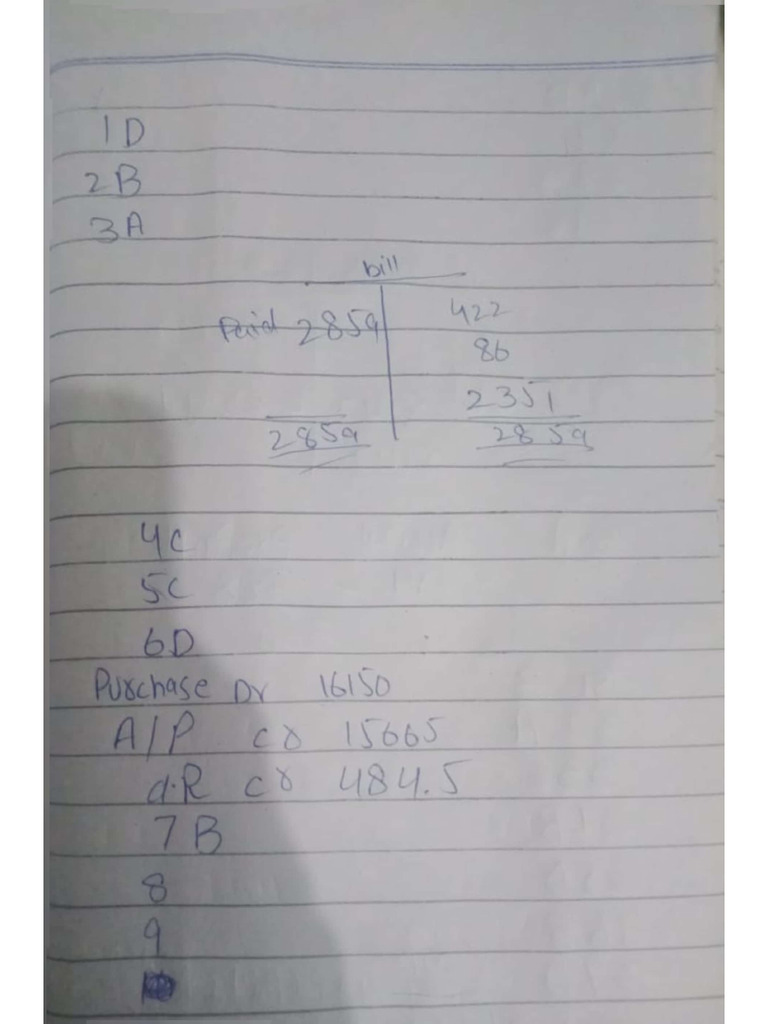 1D
2B
3A
bill
Paid 2859 422
86
2351
2859 2859
4C
5C
6D
Purchase Dr 16150
A/P cr 15665
d.R cr 484.5
7B
8
9